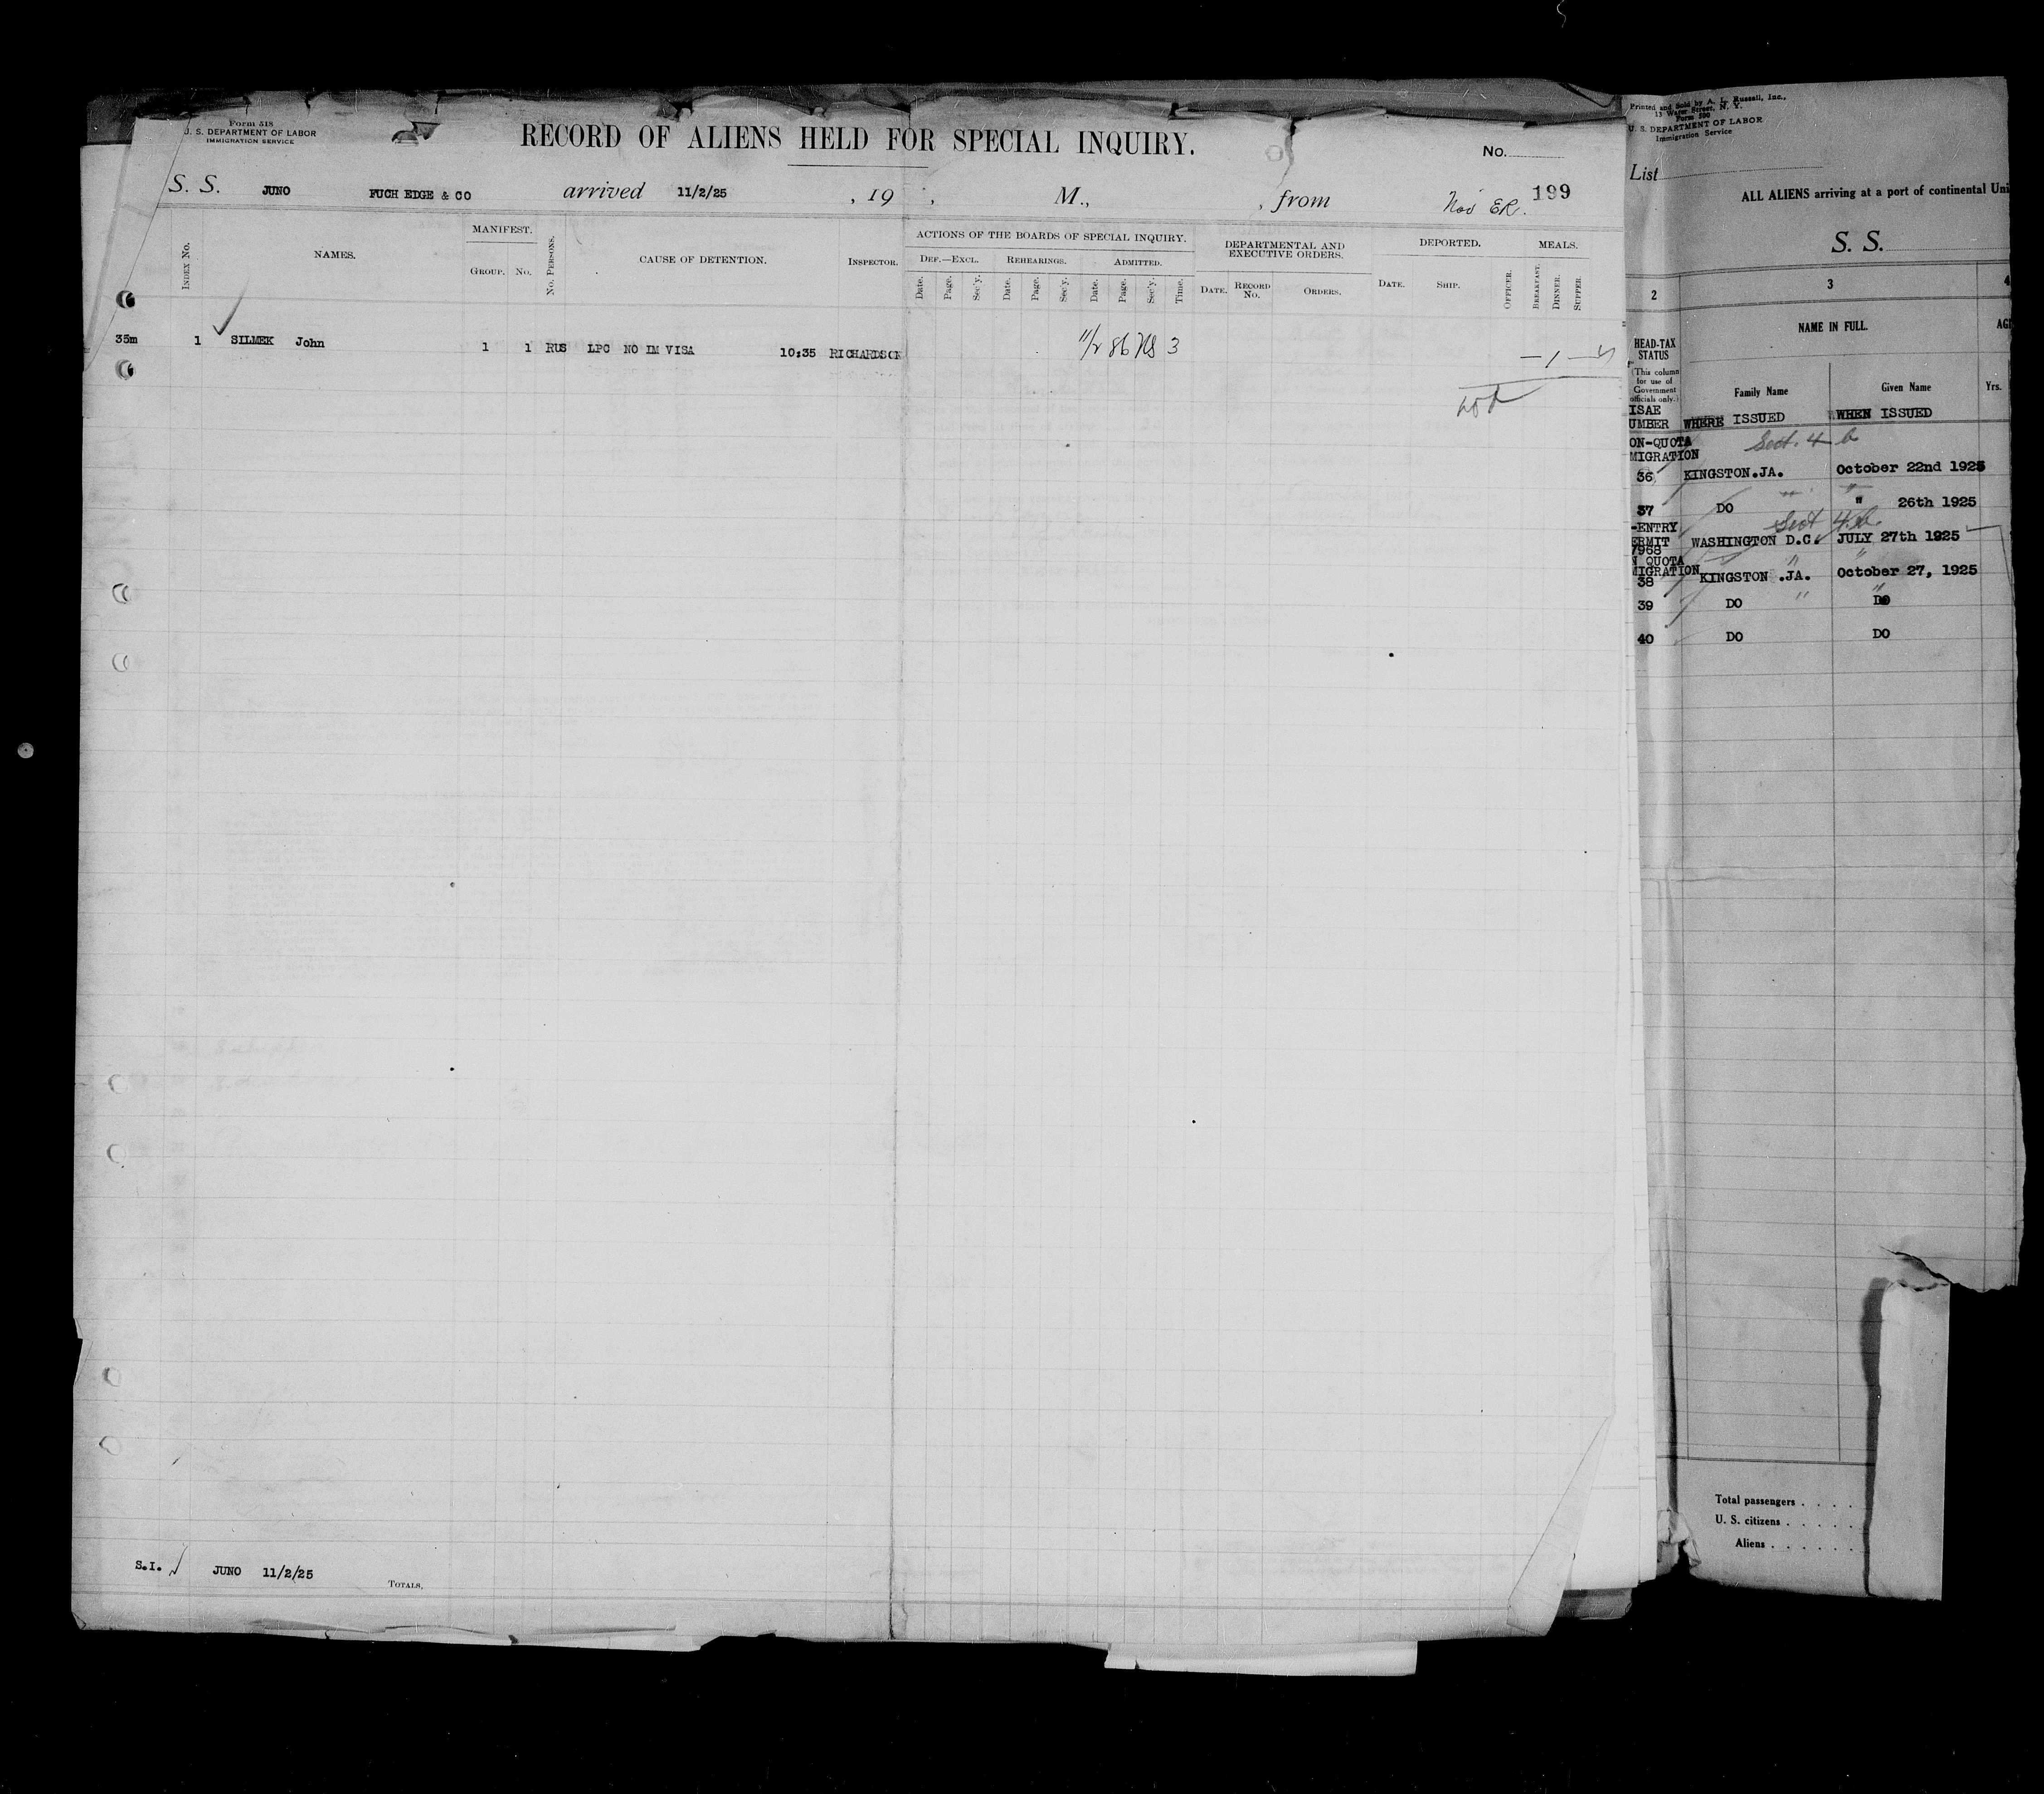 Form 518
U. S. DEPARTMENT OF LABOR
IMMIGRATION SERVICE
RECORD OF ALIENS HELD FOR SPECIAL INQUIRY.
No.
S. S. JUNO FUCH EDGE & CO arrived 11/2/25 , 19 , M., , from Nov 199
INDEX NO. NAMES. MANIFEST. GROUP. NO. NO. PERSONS. CAUSE OF DETENTION. INSPECTOR.
ACTIONS OF THE BOARDS OF SPECIAL INQUIRY.
DEF.—EXCL. REHEARINGS. ADMITTED.
Date. Page. Sec'y. Date. Page. Sec'y. Date. Page. Sec'y. Time.
DEPARTMENTAL AND EXECUTIVE ORDERS.
DATE. RECORD NO. ORDERS.
DEPORTED.
DATE. SHIP. OFFICER.
MEALS.
BREAKFAST. DINNER. SUPPER.
35m 1 SILMEK John 1 1 RUS LPC NO IM VISA 10:35 RICHARDSON 11/2 86 3
— 1 —
S.I. JUNO 11/2/25
TOTALS,
Printed and Sold by A. L. Russell, Inc.,
13 Water Street, N. Y.
Form 500
U. S. DEPARTMENT OF LABOR
Immigration Service
List
ALL ALIENS arriving at a port of continental Uni
S. S.
2 3 4
HEAD-TAX STATUS
(This column for use of Government officials only.)
NAME IN FULL.
AGE
Family Name Given Name Yrs.
ISAE
UMBER WHERE ISSUED WHEN ISSUED
ON-QUOTA Sect. 4 b
MIGRATION
36 KINGSTON.JA. October 22nd 1925
37 DO " 26th 1925
-ENTRY Sect 4 b
ERMIT WASHINGTON D.C. JULY 27th 1925
7968
N QUOTA
MIGRATION
38 KINGSTON .JA. October 27, 1925
39 DO " DO
40 DO DO
Total passengers . . . .
U. S. citizens . . . . .
Aliens . . . . . .